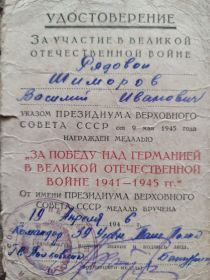 УДОСТОВЕРЕНИЕ
ЗА УЧАСТИЕ В ВЕЛИКОЙ
ОТЕЧЕСТВЕННОЙ ВОЙНЕ
Рядовой
Шиморов
Василий Иванович
УКАЗОМ ПРЕЗИДИУМА ВЕРХОВНОГО
СОВЕТА СССР от 9 мая 1945 года
НАГРАЖДЕН МЕДАЛЬЮ
„ЗА ПОБЕДУ НАД ГЕРМАНИЕЙ
В ВЕЛИКОЙ ОТЕЧЕСТВЕННОЙ
ВОЙНЕ 1941—1945 гг."
ОТ ИМЕНИ ПРЕЗИДИУМА ВЕРХОВНОГО
СОВЕТА СССР МЕДАЛЬ ВРУЧЕНА
19 Апреля 194 6
Командир 39